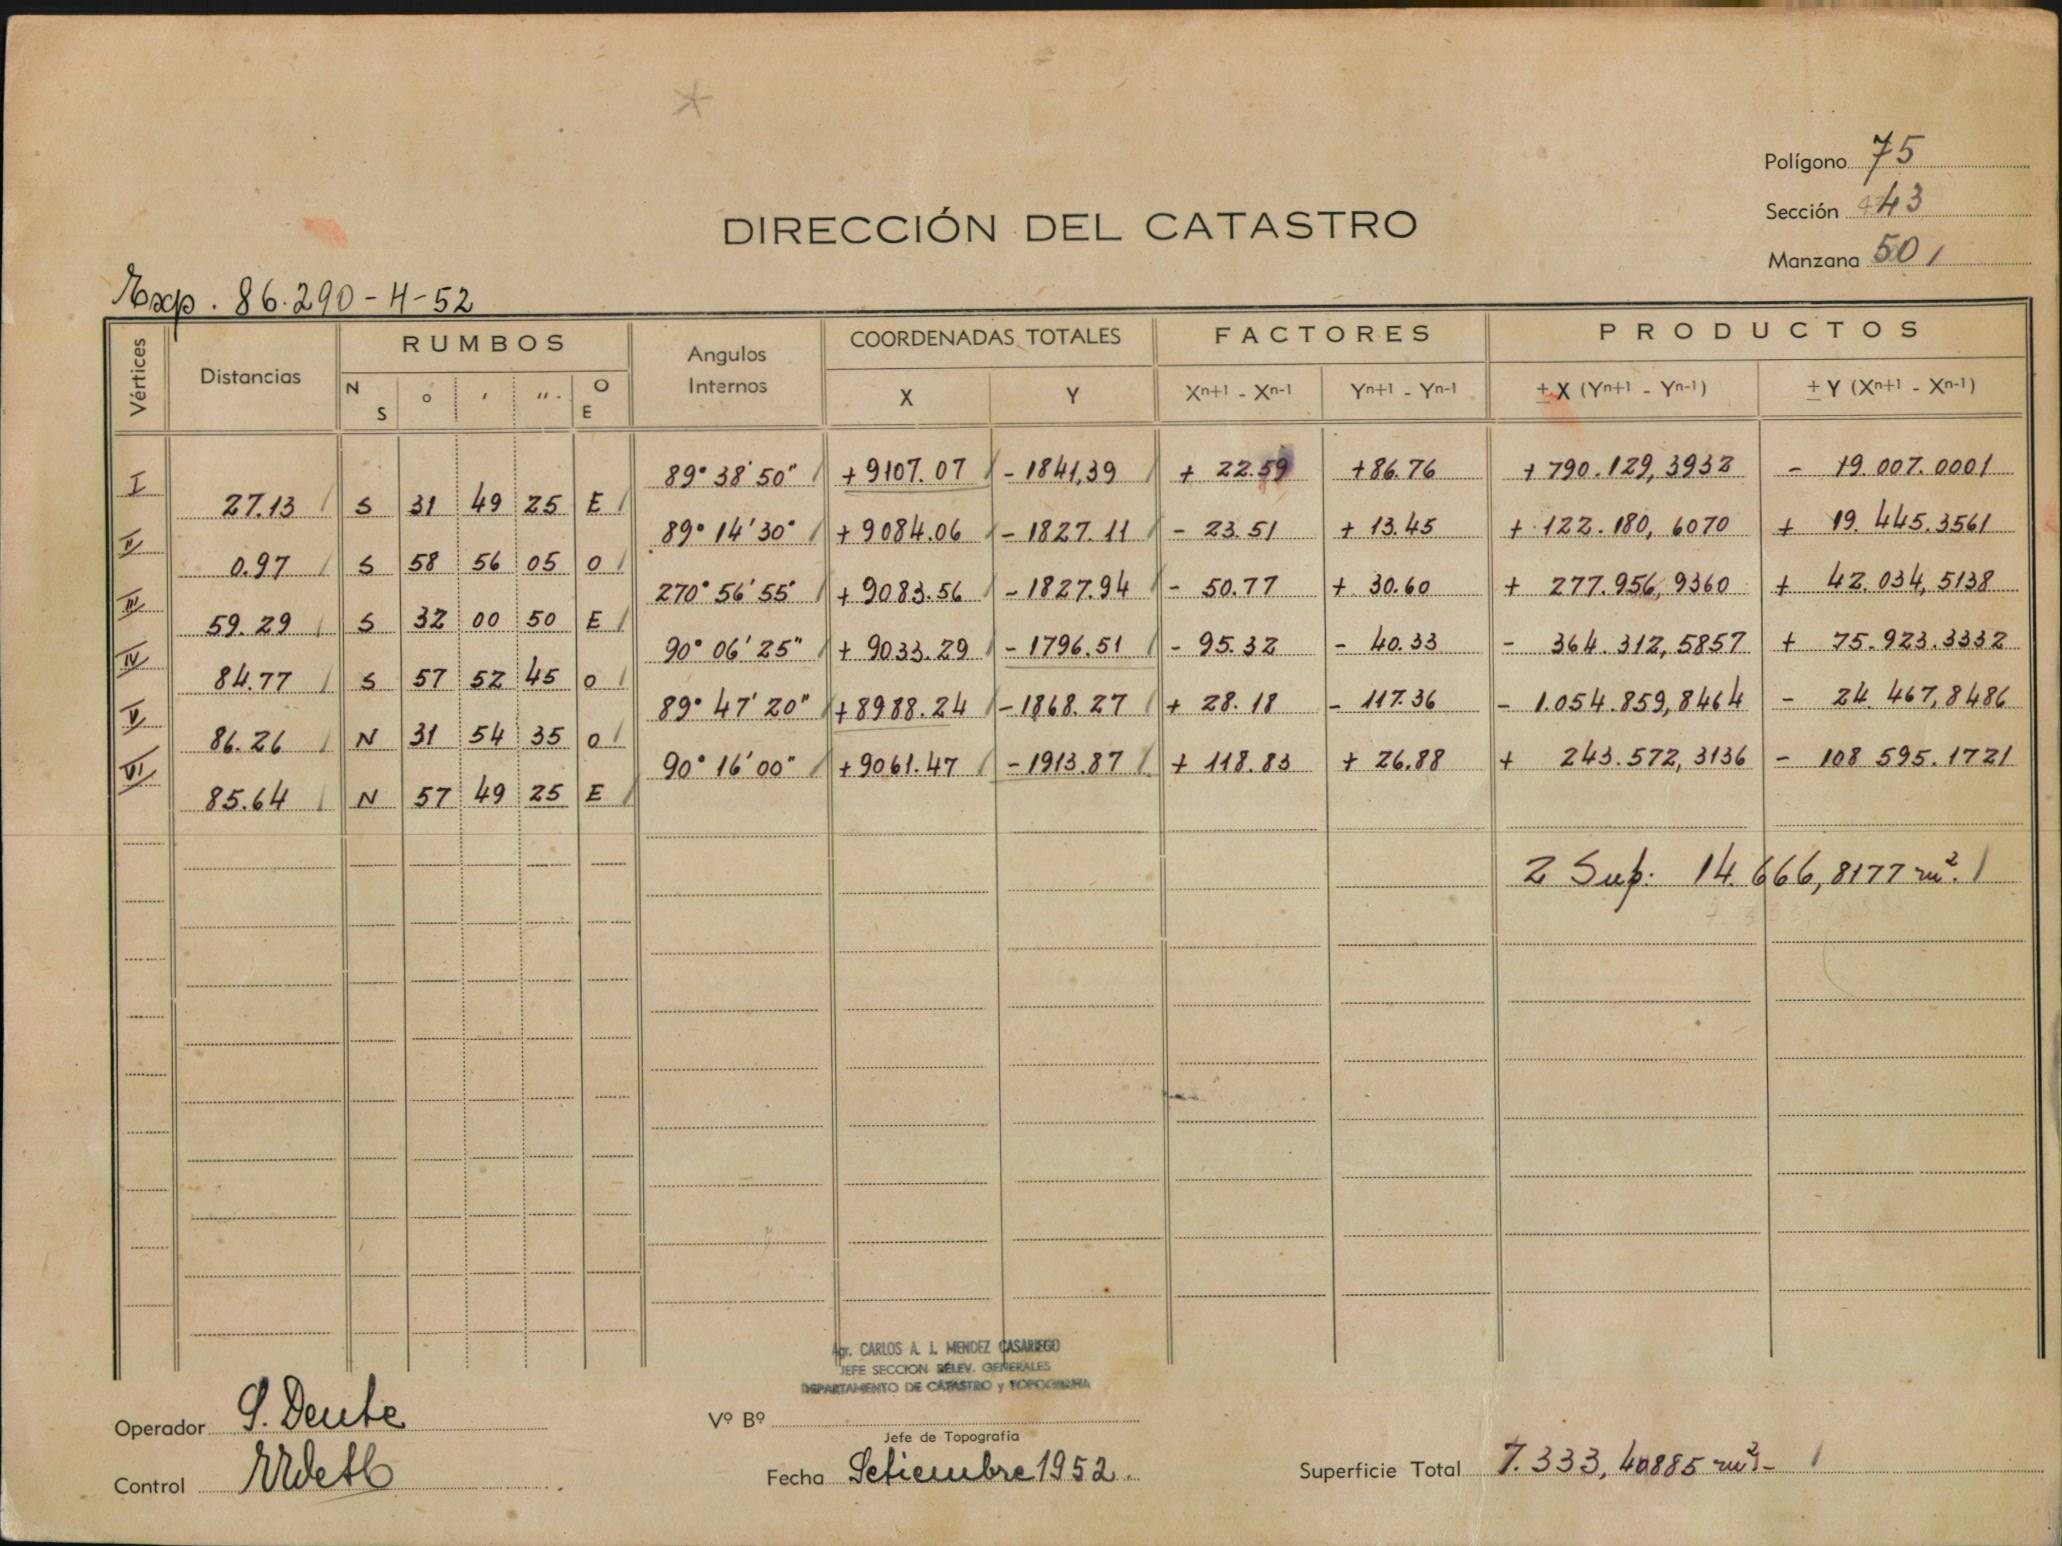 Polígono 75
Sección 43
Manzana 50
DIRECCIÓN DEL CATASTRO
Exp. 86.290-H-52
Vértices Distancias RUMBOS Angulos Internos COORDENADAS TOTALES FACTORES PRODUCTOS
N S ° ' '' O E X Y Xn+1 - Xn-1 Yn+1 - Yn-1 ± X (Yn+1 - Yn-1) ± Y (Xn+1 - Xn-1)
I 89° 38' 50" +9107.07 -1841,39 + 22.59 +86.76 +790.129,3932 - 19.007.0001
27.13 S 31 49 25 E
II 89° 14' 30" +9084.06 -1827.11 - 23.51 + 13.45 + 122.180,6070 + 19.445.3561
0.97 S 58 56 05 O
III 270° 56' 55" +9083.56 -1827.94 - 50.77 + 30.60 + 277.956,9360 + 42.034,5138
59.29 S 32 00 50 E
IV 90° 06' 25" + 9033.29 -1796.51 - 95.32 - 40.33 - 364.312,5857 + 75.923.3332
84.77 S 57 52 45 O
V 89° 47' 20" +8988.24 -1868.27 + 28.18 - 117.36 - 1.054.859,8464 - 24.467,8486
86.26 N 31 54 35 O
VI 90° 16' 00" +9061.47 -1913.87 + 118.83 + 26.88 + 243.572,3136 - 108 595.1721
85.64 N 57 49 25 E
2 Sup. 14.666,8177 m².
Agr. CARLOS A. J. MENDEZ CASARIEGO
JEFE SECCION RELEV. GENERALES
DEPARTAMENTO DE CATASTRO y TOPOGRAFIA
Operador S. Deute
Vº Bº
Jefe de Topografía
Control
Fecha Setiembre 1952.
Superficie Total 7.333,40885 m²-